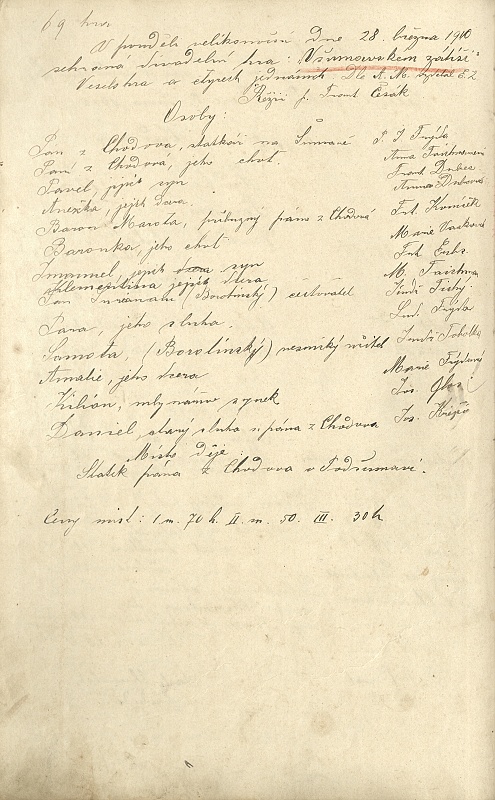 69 hra
V pondělí velikonoční Dne 28. března 1910
sehraná divadelní hra: V šumavském zátiší
Veselohra o čtyrech jednáních Dle A. M. vydělal E. Z.
Režiri p. Frant Česák
Osoby:
Pan z Chodova, statkář na Šumavě P. J. Frýda
Paní z Chodova, jeho choť. Anna Taichmanem
Pavel, jejich syn Frant Dubec
Anežka, jejich dcera. Anna Dubová
Baron Marota, příbuzný pána z Chodova Frt. Komínek
Baronka, jeho choť Marie Vacková
Imanuel, jejich dcera syn Frt. Enhs.
Klementina jejich dcera M. Taichman
Pan (Borotínský) cestovatel Jindř Tichý.
Para, jeho sluha. Lad. Frýda
Samota, (Borolínský) vesnický učitel Jindř Toholka
Amalie, jeho dcera Marie Frýdový
Kilián, mlynářův synek Jos. Glos
Daniel, starý sluha u pána z Chodova Jos. Křepš
Místo děje
Statek pána z Chodova v Podšumaví.
Ceny míst: I m. 70 h. II. m. 50. III. 30 h